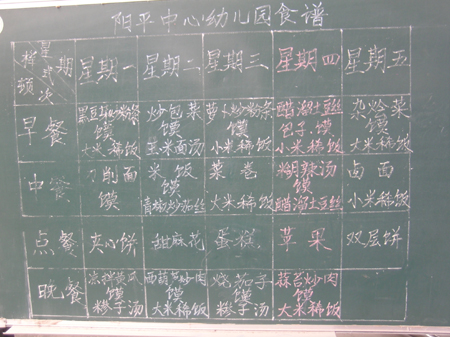 阳平中心幼儿园食谱
星期
餐次
星期一 星期二 星期三 星期四 星期五
早餐
黑豆 炒粉条 炒包菜 萝卜炒粉条 醋溜土豆丝 杂烩菜
馍 馍 馍 包子.馍 馍
大米稀饭 玉米面汤 小米稀饭 小米稀饭 大米稀饭
中餐
刀削面 米饭 菜卷 糊辣汤 卤面
馍 馍 馍
青椒炒茄丝 大米稀饭 醋溜土豆丝 小米稀饭
点餐 夹心饼 甜麻花 蛋糕 苹果 双层饼
晚餐
凉拌黄瓜 西葫芦炒肉 烧茄子 蒜苔炒肉
馍 馍 馍 馍
糁子汤 大米稀饭 糁子汤 大米稀饭